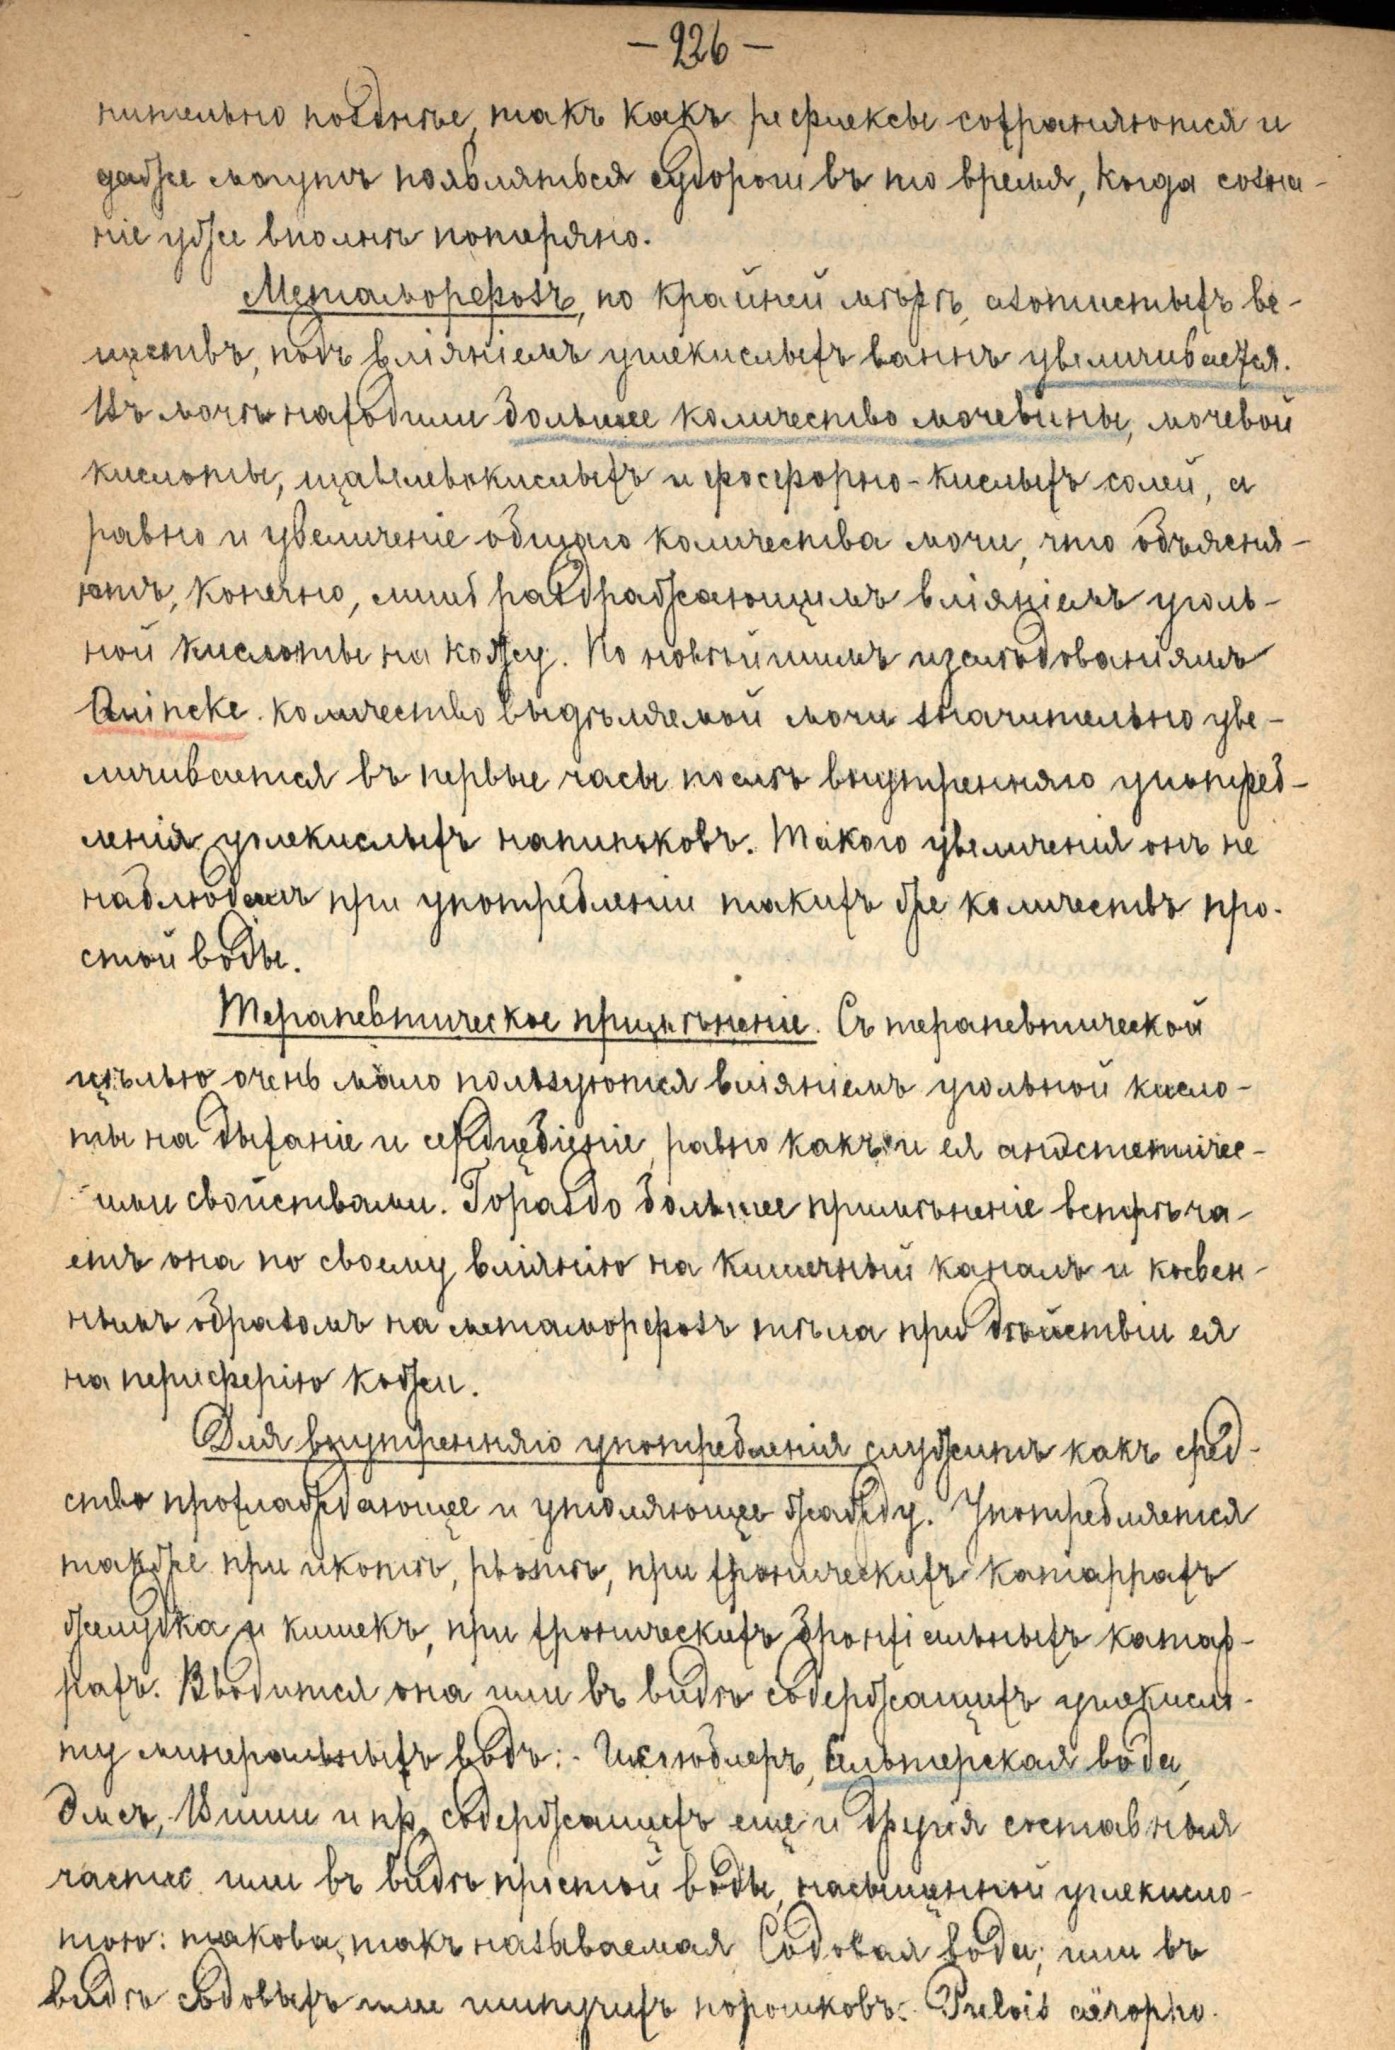 — 226 —
нительно позднѣе, такъ какъ рефлексы сохраняются и
даже могутъ появляться судороги въ то время, когда созна-
ніе уже вполнѣ потеряно.
Метаморфозъ, по крайней мѣрѣ, азотистыхъ ве-
ществъ, подъ вліяніемъ углекислыхъ ваннъ увеличивается.
Въ мочѣ находили большее количество мочевины, мочевой
кислоты, щавелевокислыхъ и фосфорно-кислыхъ солей, а
равно и увеличеніе общаго количества мочи, что объясня-
ютъ, конечно, лишь раздражающимъ вліяніемъ уголь-
ной кислоты на кожу. По новѣйшимъ изслѣдованіямъ
Quincke количество выдѣляемой мочи значительно уве-
личивается въ первые часы послѣ внутренняго употреб-
ленія углекислыхъ напитковъ. Такого увеличенія онъ не
наблюдалъ при употребленіи такихъ же количествъ про-
стой воды.
Терапевтическое примѣненіе. Съ терапевтической
цѣлью очень мало пользуются вліяніемъ угольной кисло-
ты на дыханіе и сердцебіеніе, равно какъ и ея анэстетичес-
ими свойствами. Гораздо большее примѣненіе встрѣча-
етъ она по своему вліянію на кишечный каналъ и косвен-
нымъ образомъ на метаморфозъ тѣла при дѣйствіи ея
на периферію кожи.
Для внутренняго употребленія служитъ какъ сред-
ство прохлаждающее и утоляющее жажду. Употребляется
также при икотѣ, рвотѣ, при хроническихъ катаррахъ
желудка и кишекъ, при хроническихъ бронхіальныхъ катар-
рахъ. Вводится она или въ видѣ содержащихъ углекисло-
ту минеральныхъ водъ: Гисгюблеръ, Сельтерская вода,
Эмсъ, Виши и пр. содержащихъ еще и другія составныя
части или въ видѣ простой воды, насыщенной углекисло-
тою: такова, такъ называемая Содовая вода; или въ
видѣ содовыхъ или шипучихъ порошковъ: Pulvis aёropho-